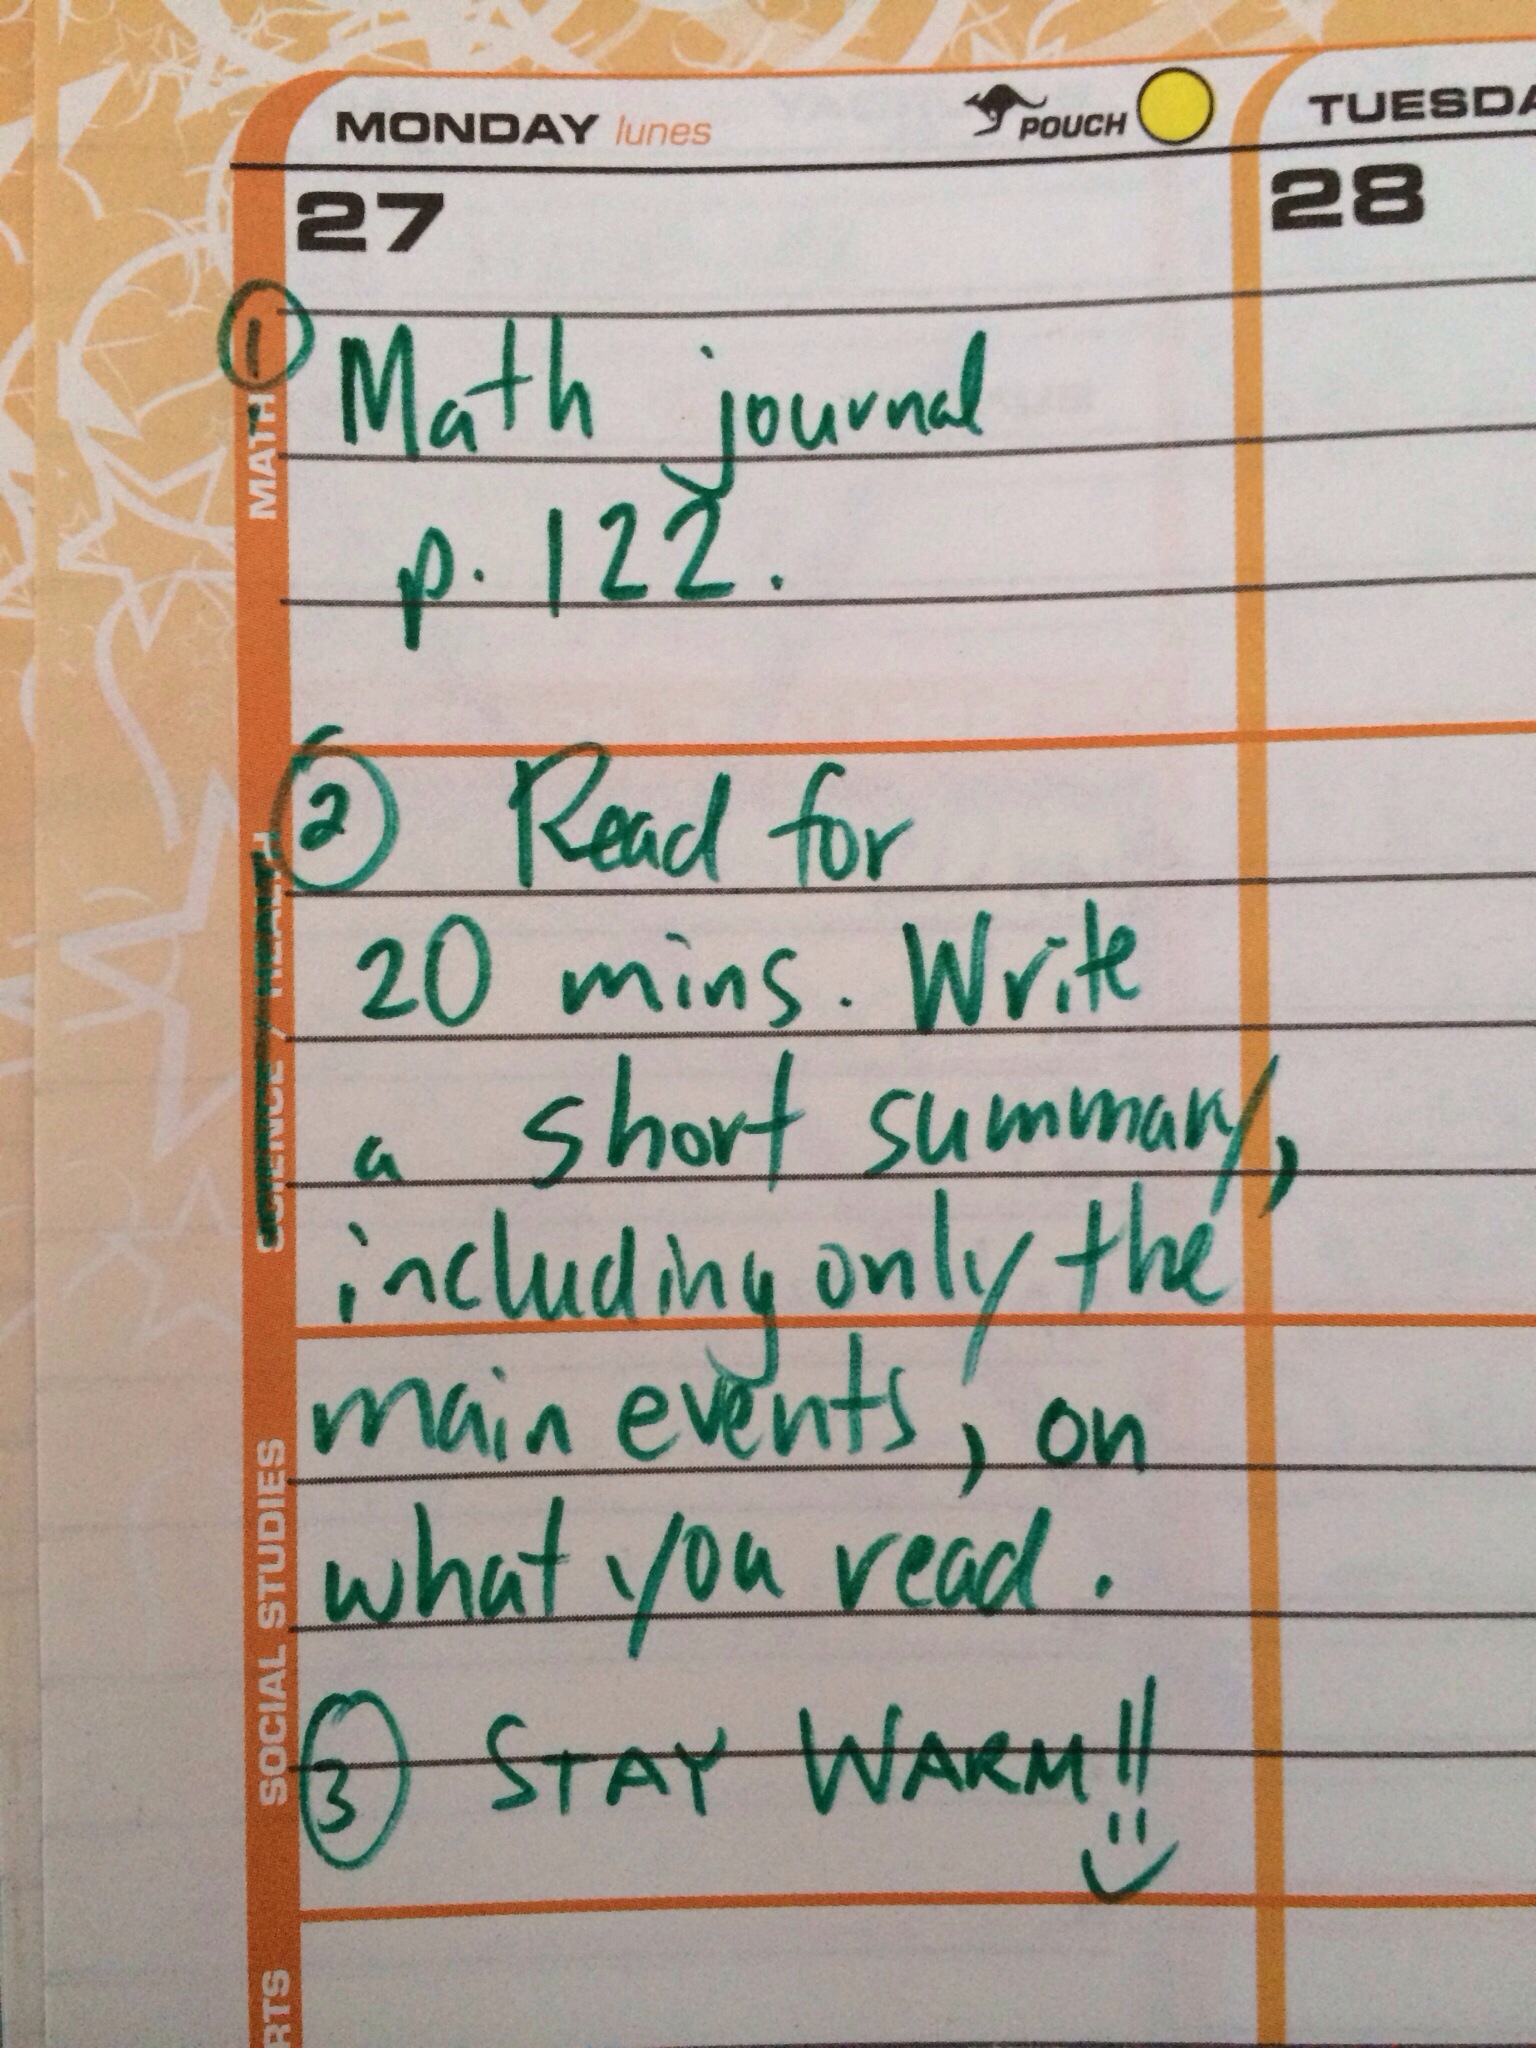 MONDAY lunes POUCH TUESDA
27 28
1 Math journal
p. 122.
2 Read for
20 mins. Write
a short summary,
including only the
main events, on
what you read.
3 STAY WARM!!
MATH
SCIENCE / HEALTH
SOCIAL STUDIES
RTS